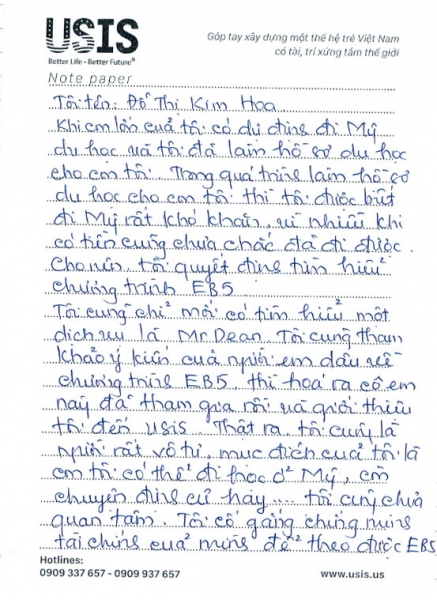 USIS
Better Life - Better Future®
Góp tay xây dựng một thế hệ trẻ Việt Nam
có tài, trí xứng tầm thế giới
Note paper
Tôi tên: Đỗ Thị Kim Hoa
Khi em lớn của tôi có dự định đi Mỹ
du học và tôi đã làm hồ sơ du học
cho con tôi. Trong quá trình làm hồ sơ
du học cho con tôi thì tôi được biết
đi Mỹ rất khó khăn, vì nhiều khi
có tiền cũng chưa chắc đã đi được.
Cho nên, tôi quyết định tìm hiểu
chương trình EB5
Tôi cũng chỉ mới có tìm hiểu một
dịch vụ là Mr Dean. Tôi cũng tham
khảo ý kiến của người em dâu về
chương trình EB5, thì hoá ra cô em
này đã tham gia rồi và giới thiệu
tôi đến USIS. Thật ra, tôi cũng là
người rất vô tư, mục đích của tôi là
con tôi có thể đi học ở Mỹ, còn
chuyện định cư hay.... tôi cũng chưa
quan tâm. Tôi cố gắng chứng minh
tài chính của mình để theo được EB5
Hotlines:
0909 337 657 - 0909 937 657
www.usis.us